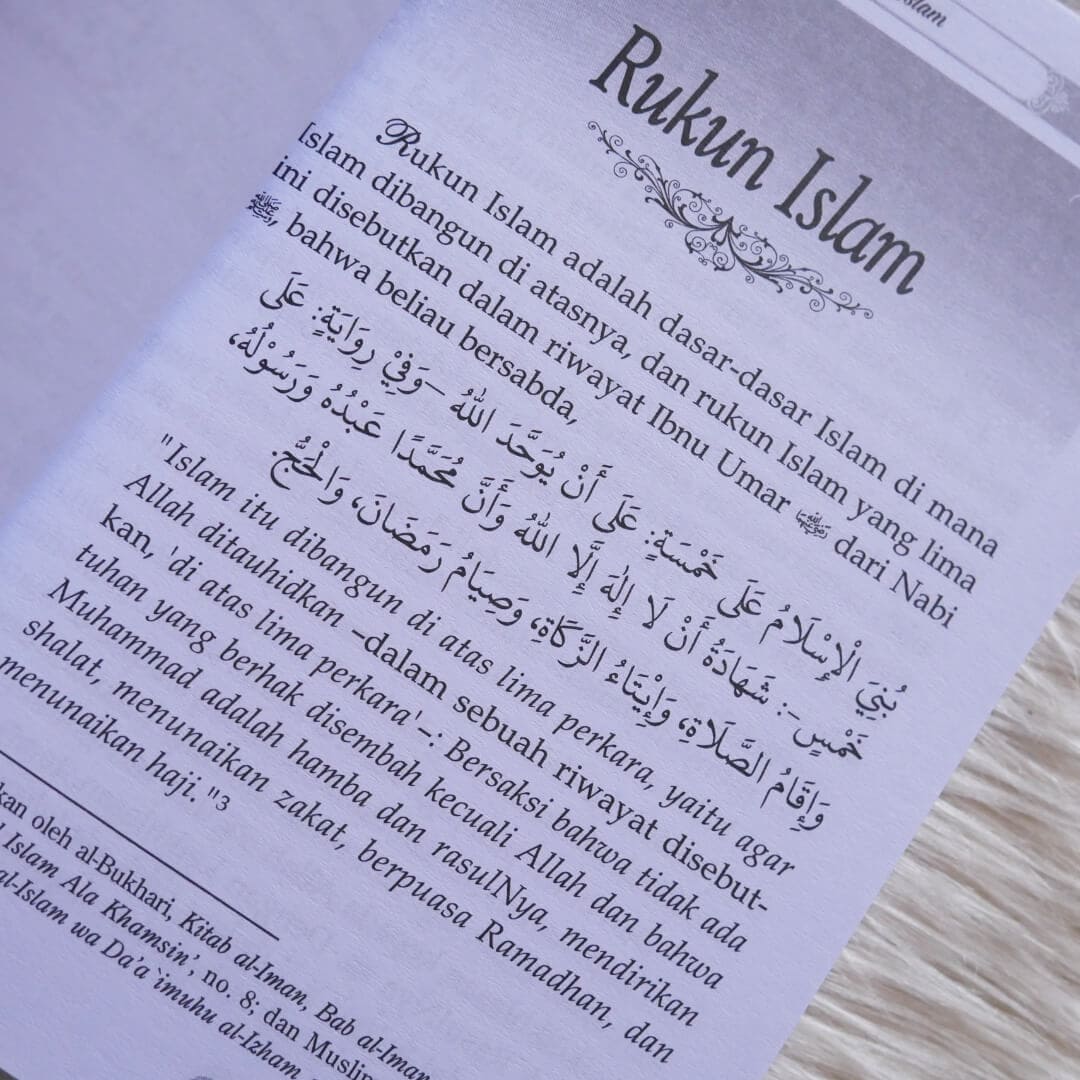 Islam
Rukun Islam
Rukun Islam adalah dasar-dasar Islam di mana
Islam dibangun di atasnya, dan rukun Islam yang lima
ini disebutkan dalam riwayat Ibnu Umar رضي الله عنهما dari Nabi
ﷺ, bahwa beliau bersabda,
بُنِيَ الْإِسْلَامُ عَلَى خَمْسَةٍ: عَلَى أَنْ يُوَحَّدَ اللهُ –وَفِيْ رِوَايَةٍ: عَلَى
خَمْسٍ–: شَهَادَةُ أَنْ لَا إِلٰهَ إِلَّا اللهُ وَأَنَّ مُحَمَّدًا عَبْدُهُ وَرَسُوْلُهُ،
وَإِقَامُ الصَّلَاةِ، وَإِيْتَاءُ الزَّكَاةِ، وَصِيَامُ رَمَضَانَ، وَالْحَجُّ.
"Islam itu dibangun di atas lima perkara, yaitu agar
Allah ditauhidkan –dalam sebuah riwayat disebut-
kan, 'di atas lima perkara'–: Bersaksi bahwa tidak ada
tuhan yang berhak disembah kecuali Allah dan bahwa
Muhammad adalah hamba dan rasulNya, mendirikan
shalat, menunaikan zakat, berpuasa Ramadhan, dan
menunaikan haji."3
kan oleh al-Bukhari, Kitab al-Iman, Bab al-Iman
Islam Ala Khamsin', no. 8; dan Muslim
al-Islam wa Da'a`imuhu al-Izham